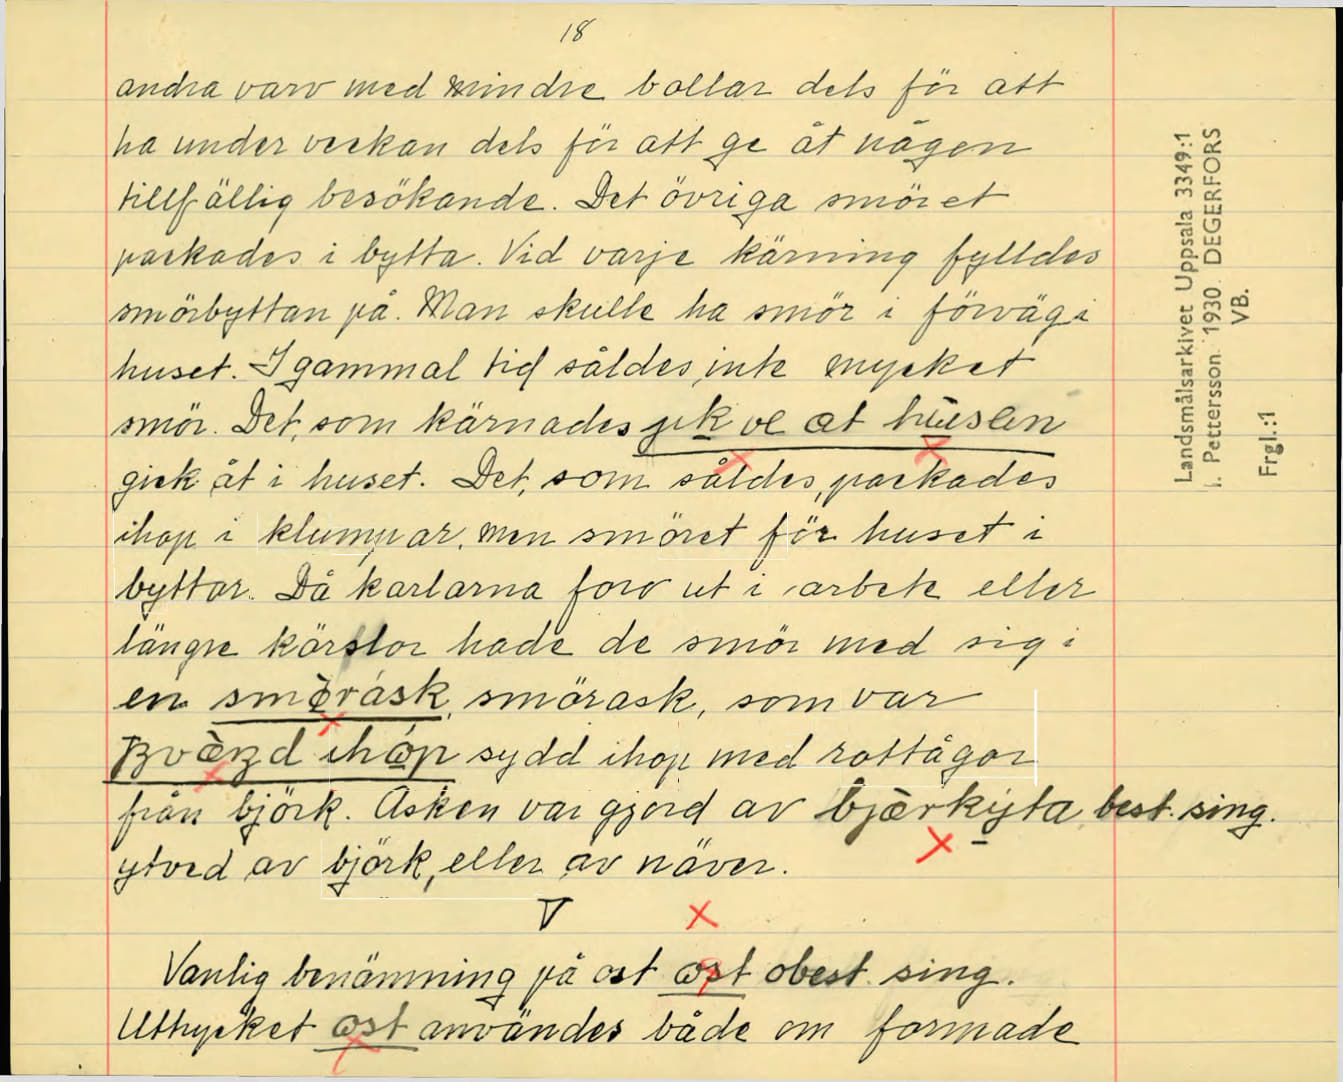 18
andra varv med mindre bollar dels för att
ha under veckan dels för att ge åt någon
tillfällig besökande. Det övriga smöret
packades i bytta. Vid varje kärning fylldes
smörbyttan på. Man skulle ha smör i förväg i
huset. I gammal tid såldes inte mycket
smör. Det, som kärnades jɩk ve æt hùsen
gick åt i huset. Det, som såldes, packades
ihop i klumpar, men smöret för huset i
byttor. Då karlarna forv ut i arbete eller
längre körslor hade de smör med sig i
en smörask, som var
ihop sydd ihop med rottågor
från björk. Asken var gjord av bjærkyta best. sing.
ytved av björk, eller av näver.
Vanlig benämning på ost ɷst obest. sing.
Uttrycket ɷst användes både om formade
Landsmålsarkivet Uppsala 3349:1
I. Pettersson. 1930. DEGERFORS
VB.
Frgl.:1